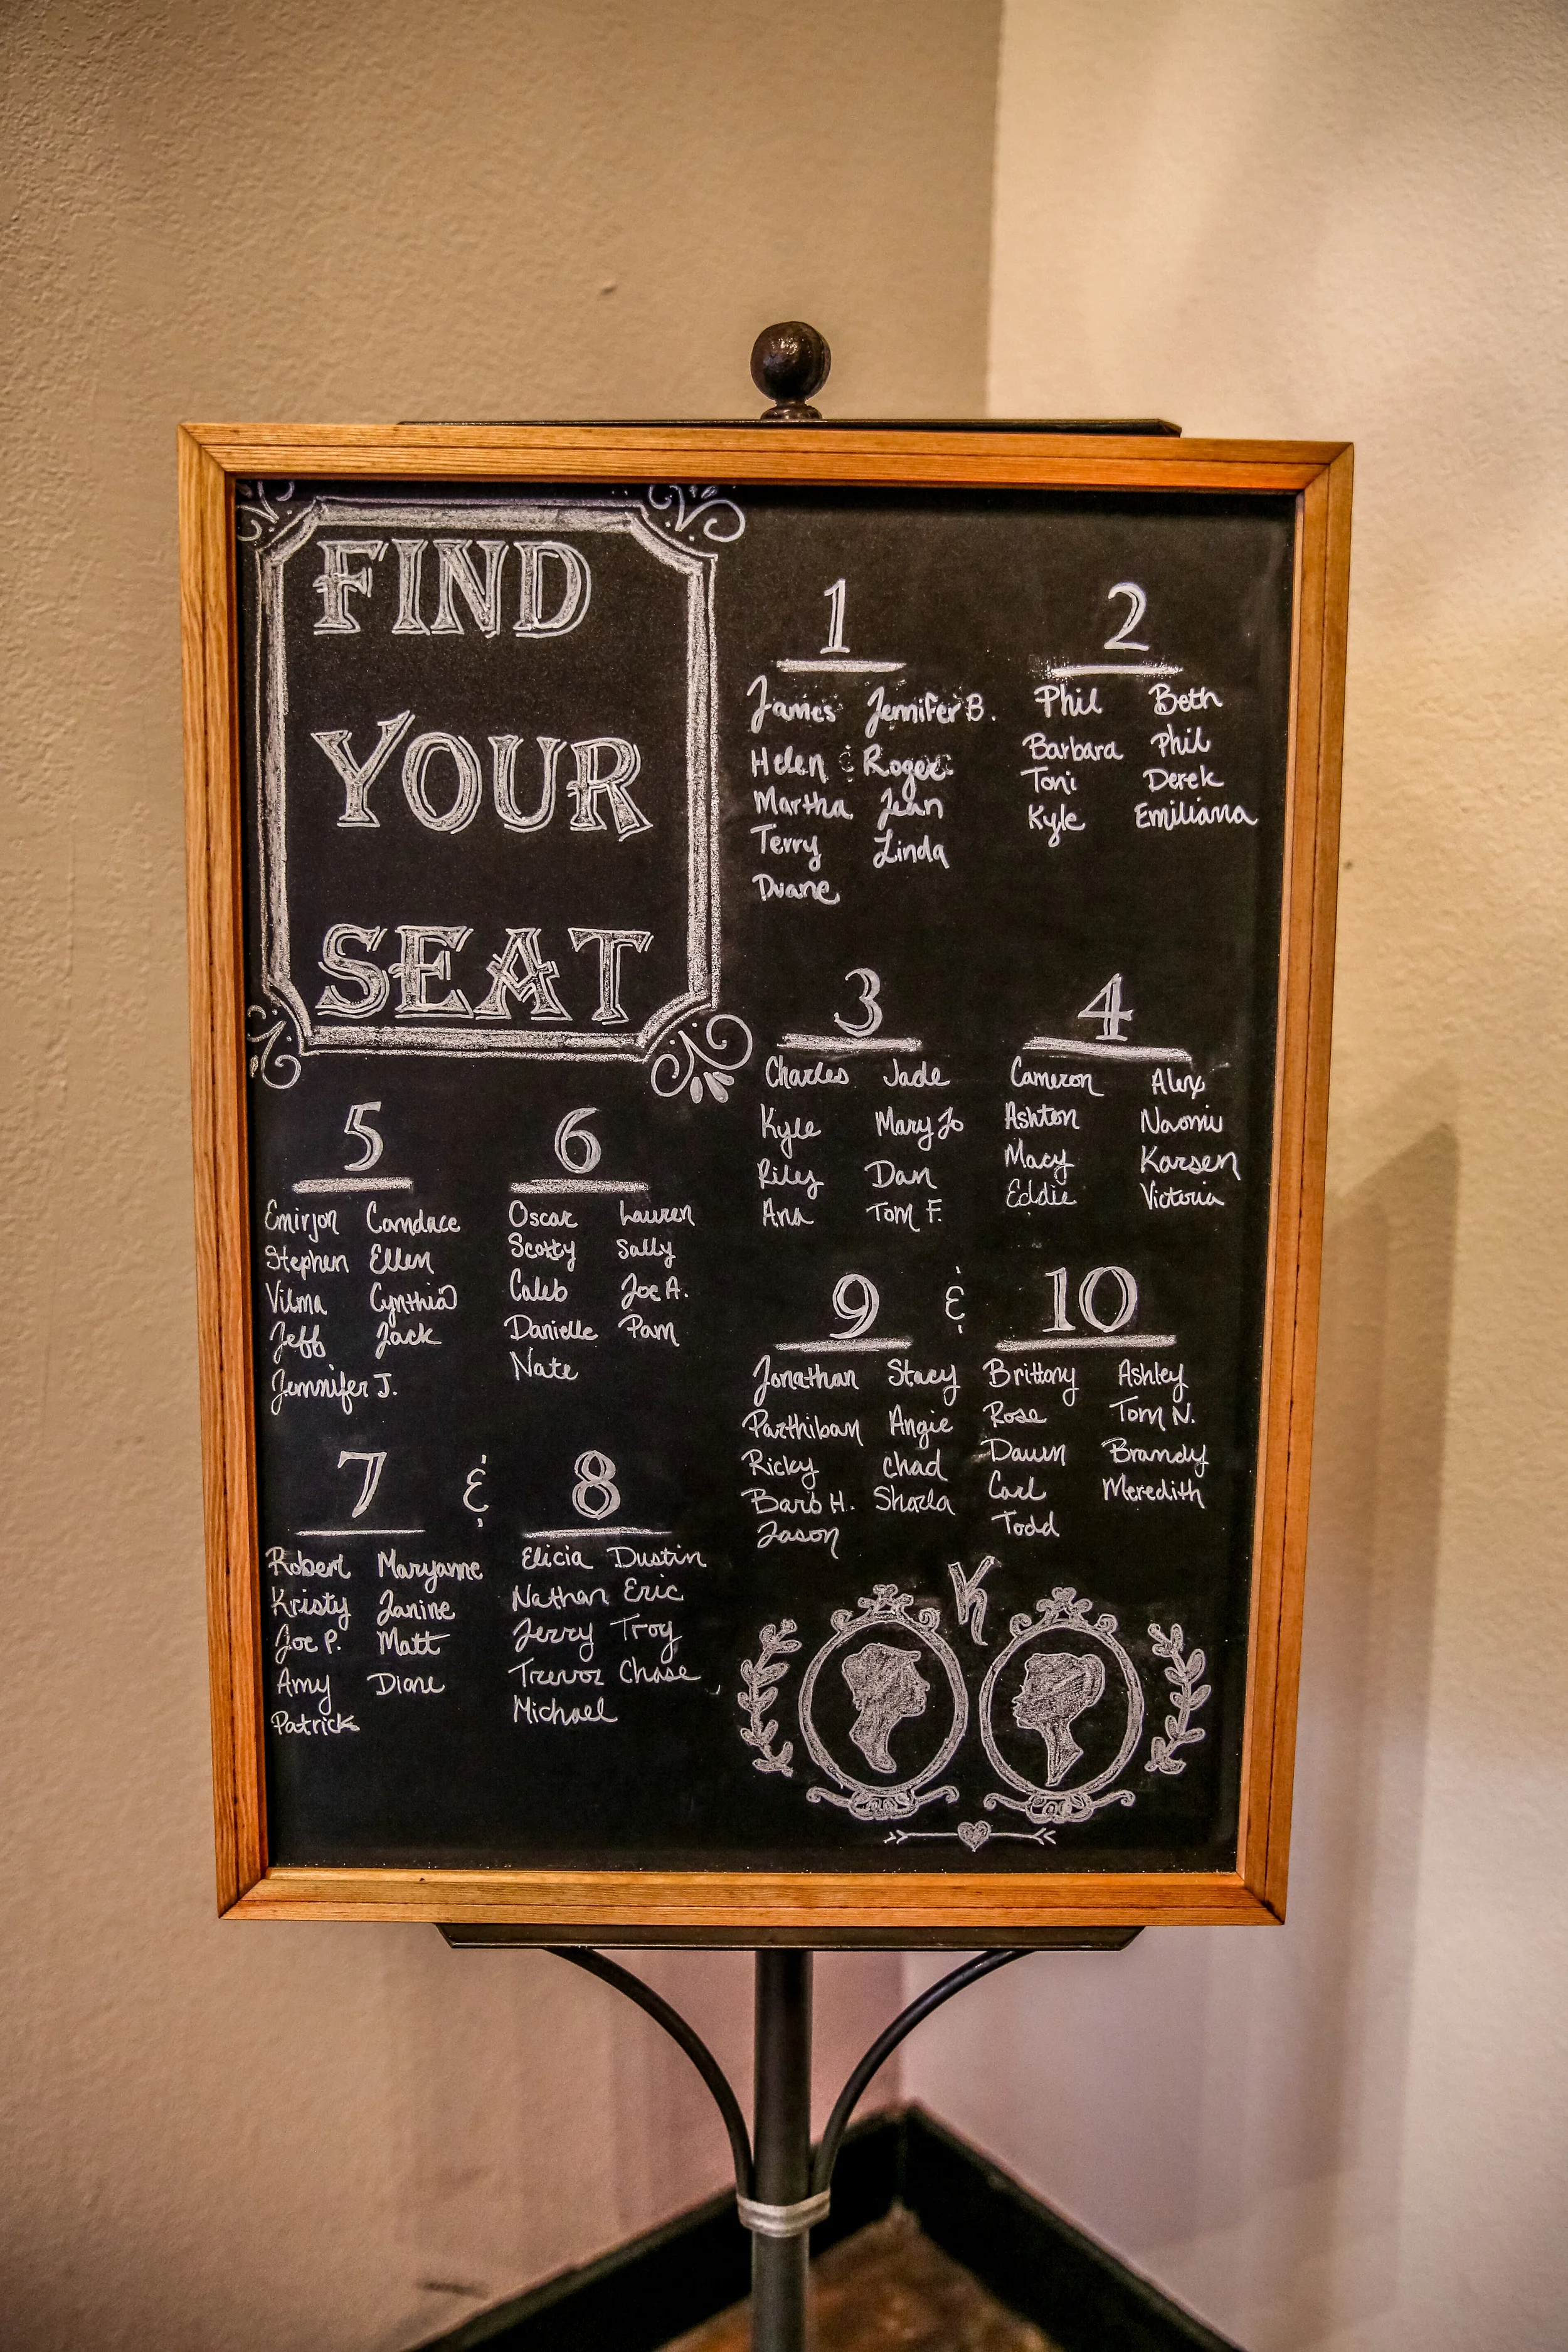 FIND
YOUR
SEAT
1
James Jennifer B.
Helen & Roger
Martha Jean
Terry Linda
Duane
2
Phil Beth
Barbara Phil
Toni Derek
Kyle Emiliana
3
Charles Jade
Kyle Mary Jo
Riley Dan
Ana Tom F.
4
Cameron Alex
Ashton Naomi
Macy Karsen
Eddie Victoria
5
Emirjon Candace
Stephen Ellen
Vilma Cynthia
Jeff Jack
Jennifer J.
6
Oscar Lauren
Scotty Sally
Caleb Joe A.
Danielle Pam
Nate
7 & 8
Robert Maryanne Elicia Dustin
Kristy Janine Nathan Eric
Joe P. Matt Jerry Troy
Amy Diane Trevor Chase
Patrick Michael
9 & 10
Jonathan Stacy Brittony Ashley
Parthiban Angie Rose Tom N.
Ricky Chad Dawn Brandy
Barb H. Sharla Carl Meredith
Jason Todd
K